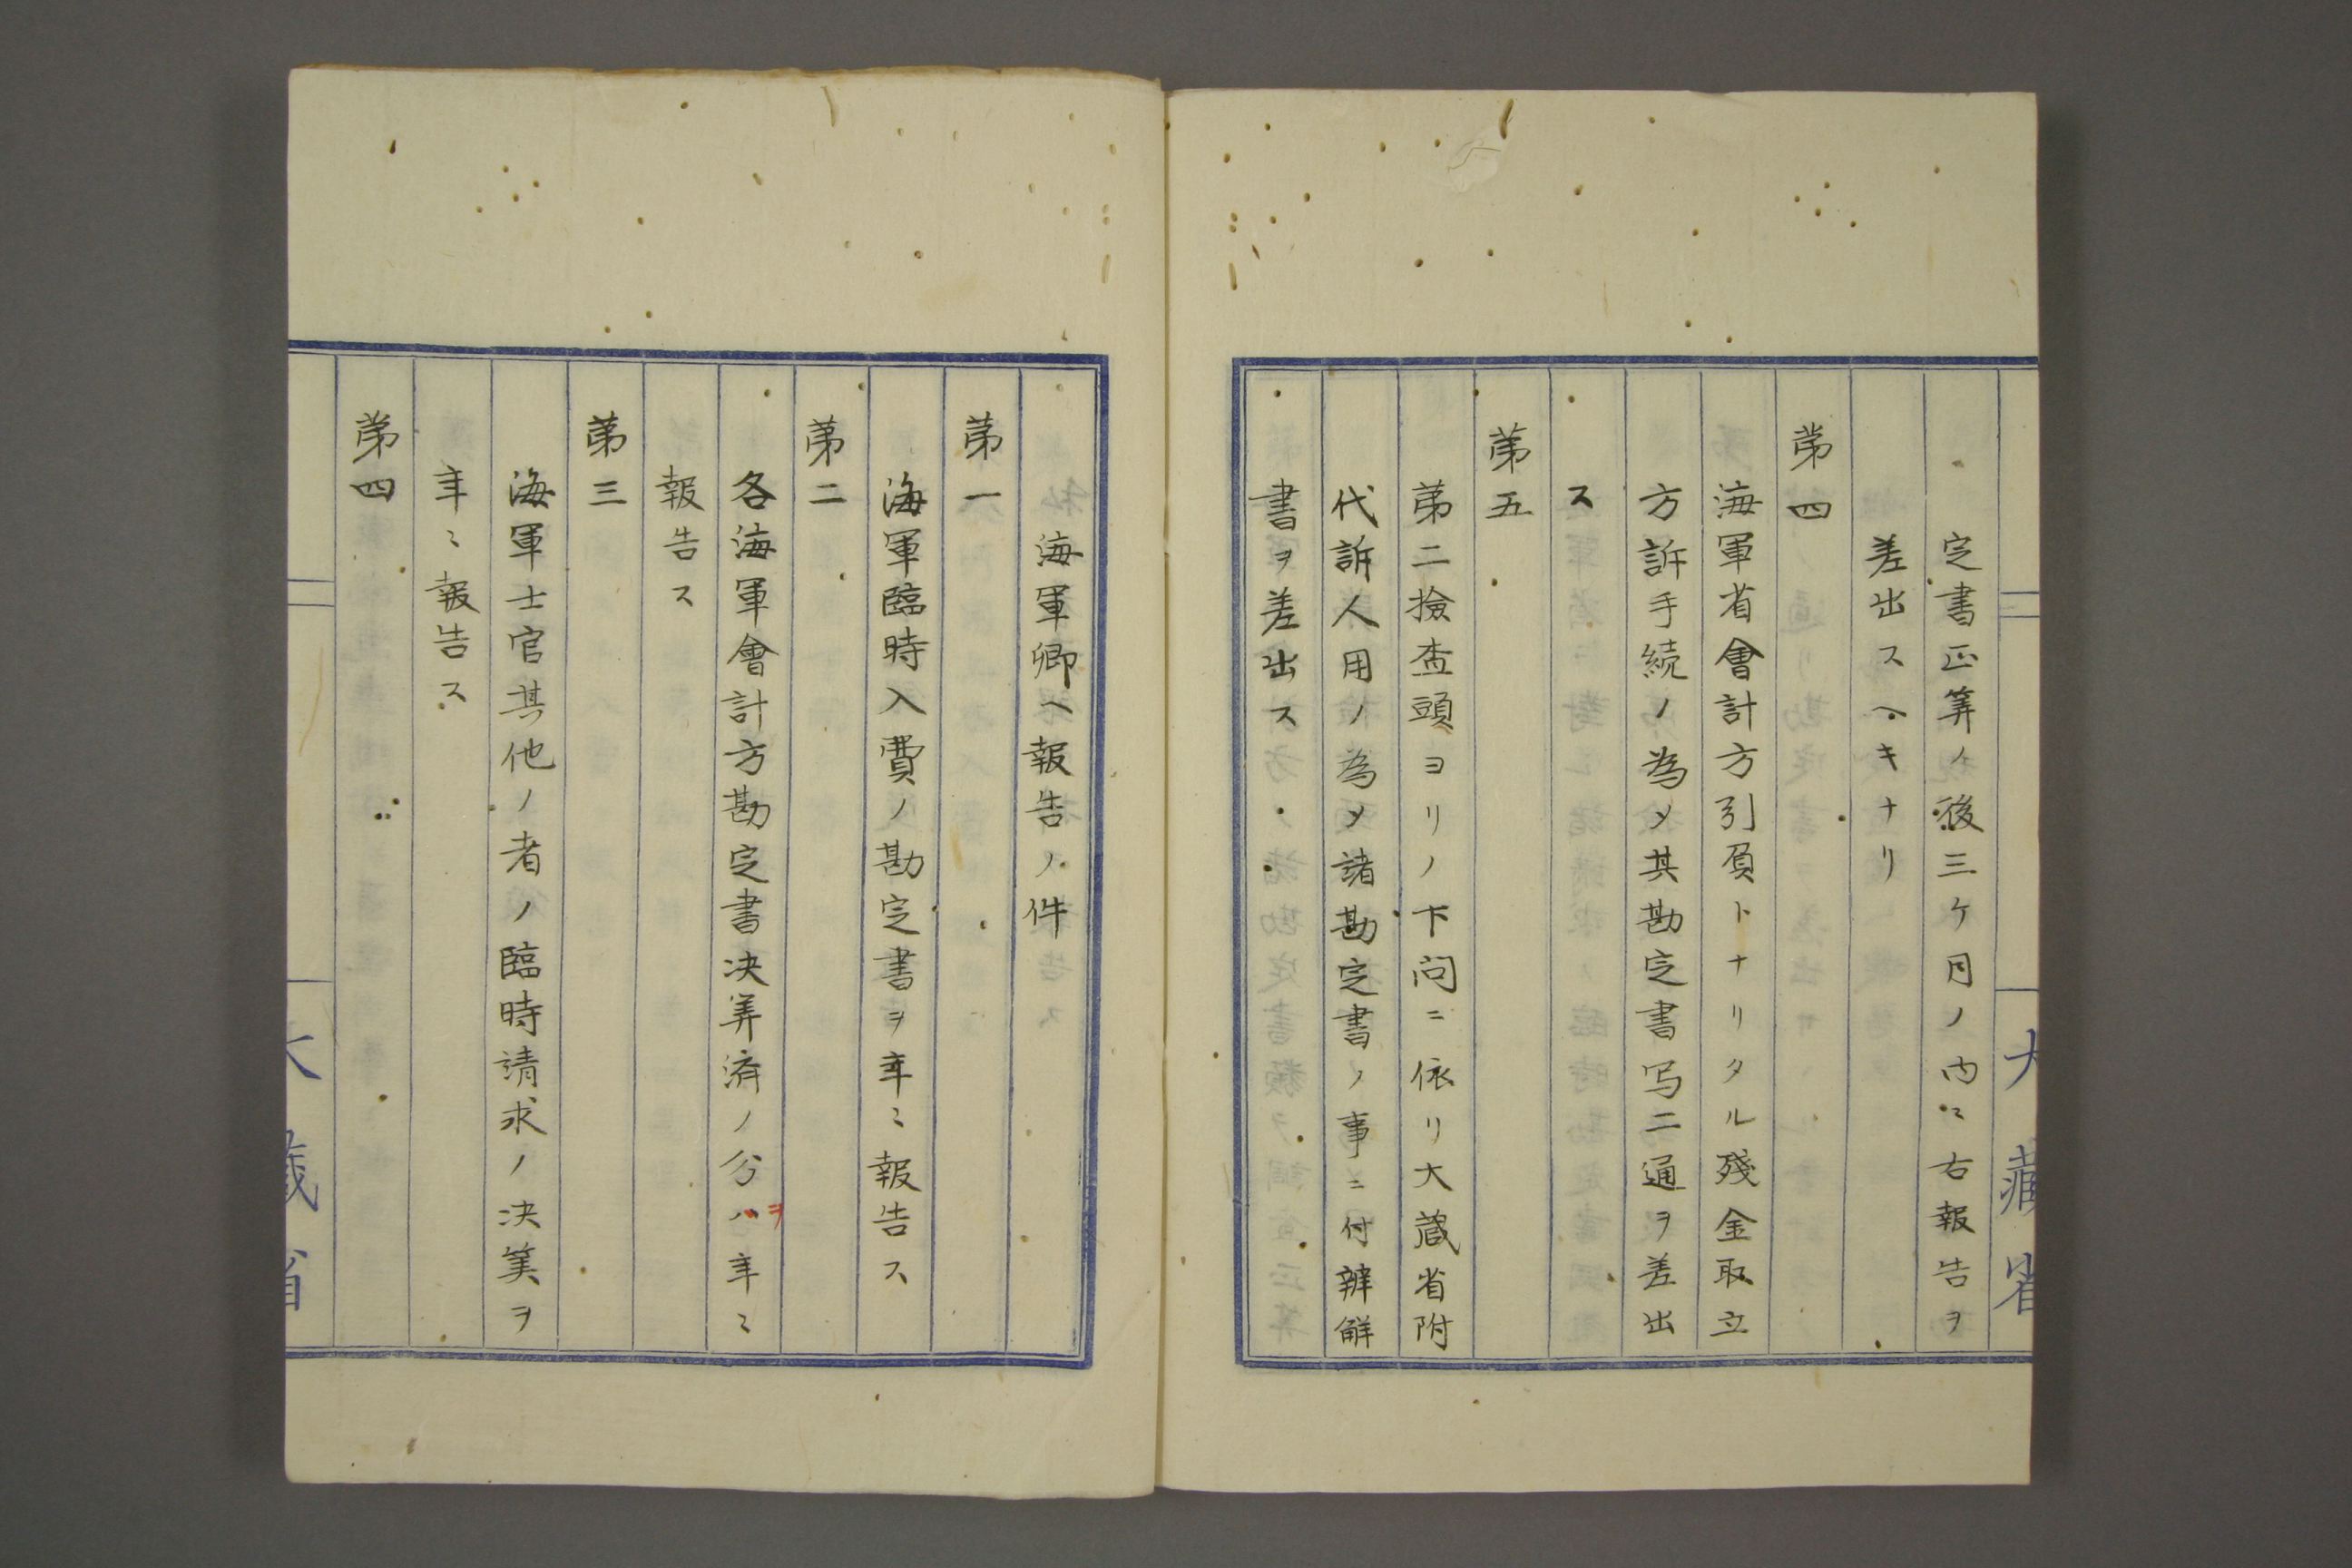 定書正筭ノ後三ケ月ノ内ニ右報告ヲ
差出スヘキナリ
第四
海軍省會計方引負トナリタル殘金取立
方訴手続ノ為メ其勘定書写二通ヲ差出
ス
第五
第二撿査頭ヨリノ下問ニ依リ大蔵省附
代訴人用ノ為メ諸勘定書ノ事ニ付辨解
書ヲ差出ス
海軍卿ヘ報告ノ件
第一
海軍臨時入費ノ勘定書ヲ年ミ報告ス
第二
各海軍會計方勘定書决筭済ノ分ハヲ年ミ
報告ス
第三
海軍士官其他ノ者ノ臨時請求ノ决筭ヲ
年ミ報告ス
第四
大藏省
大藏省